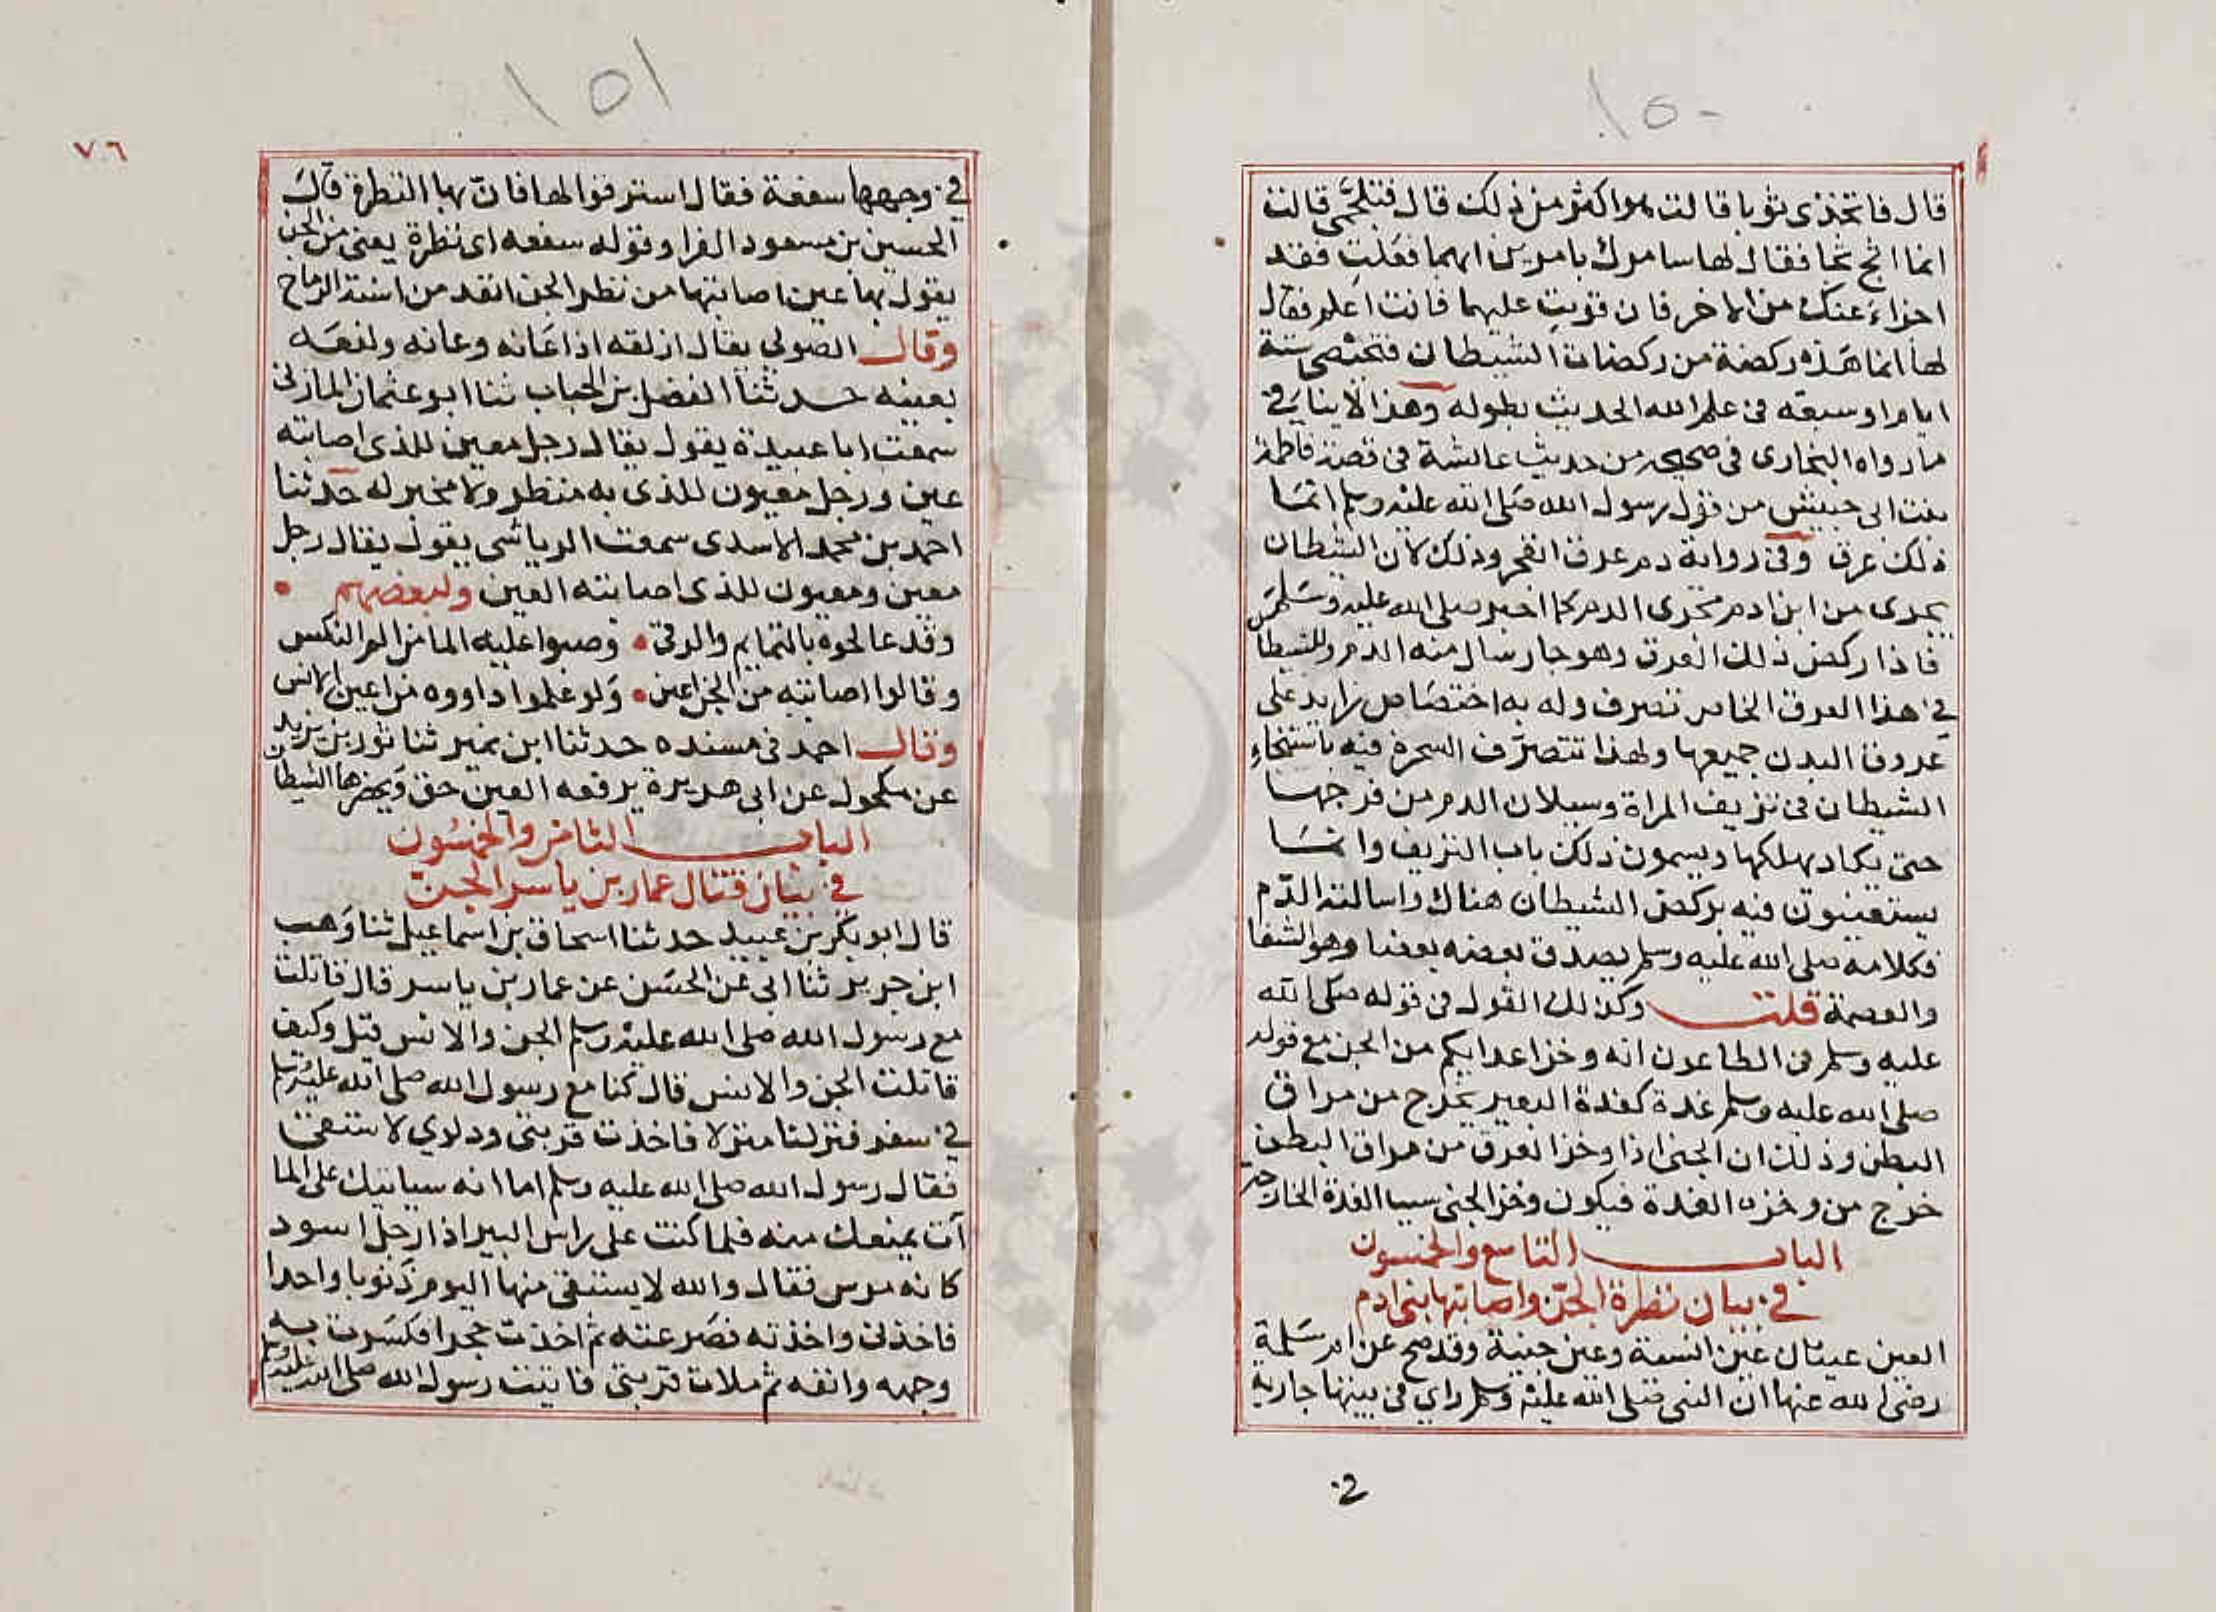 ١٥٠
قال فاتخذى ثوبا قالت هو اكثر من ذلك قال فتلجمى قالت
انما اثج ثجا فقال لها سامرك بامرين ايهما فعلت فقد
اجزاء عنك من الاخر فان قويت عليهما فانت اعلم فقال
لها انما هذه ركضة من ركضات الشيطان فتحيضى ستة
ايام او سبعه فى علم الله الحديث بطوله وهذا لا ينافى
ما رواه البخارى فى صحيحه من حديث عائشة فى قصة فاطمة
بنت ابى حبيش من قول رسول الله صلى الله عليه وسلم انما
ذلك عرق وفى رواية دم عرق انفجر وذلك لان الشيطان
يجرى من ابن ادم مجرى الدم كما اخبر صلى الله عليه وسلم
فاذا ركض ذلك العرق وهو جار سال منه الدم وللشيطا
فى هذا العرق الخاص تصرف وله به اختصاص زايد على
عروق البدن جميعها ولهذا تتصرف السحرة فيه باستنجاء
الشيطان فى نزيف المراة وسيلان الدم من فرجها
حتى يكاد يهلكها ويسمون ذلك باب النزيف وانما
يستعينون فيه بركض الشيطان هناك واسالة الدم
فكلامه صلى الله عليه وسلم يصدق بعضه بعضا وهو الشفا
والعصمة قلت وكذلك القول فى قوله صلى الله
عليه وسلم فى الطاعون انه وخز اعدايكم من الجن مع قوله
صلى الله عليه وسلم غدة كغدة البعير تخرج من مراق
البطن وذلك ان الجنى اذا وخز العرق من مراق البطن
خرج من وخزه الغدة فيكون وخز الجنى سببا الغدة الخارجة
الباب التاسع والخمسون
فى بيان نظرة الجن واصابتها بنى ادم
العين عينان عين انسية وعين جنية وقد صح عن ام سلمة
رضى الله عنها ان النبى صلى الله عليه وسلم راى فى بيتها جارية
فى
١٥١
٧٦
فى وجهها سفعة فقال استرقوا لها فان بها النظرة قال
الحسين بن مسعود الفرا وقوله سفعه اى نظرة يعنى من الجن
يقول بها عين اصابتها من نظر الجن انقد من اسنة الرماح
وقال الصولى يقال ازلقه اذا عانه وعانه ولقعه
بعينه حدثنا الفضل بن الحباب ثنا ابو عثمان المازنى
سمعت ابا عبيدة يقول يقال رجل معين للذى اصابته
عين ورجل معيون للذى به منظر ولا مخبر له حدثنا
احمد بن محمد الاسدى سمعت الرياشى يقول يقال رجل
معين ومعيون للذى اصابته العين ولبعضهم
وقد عالجوه بالتمايم والرقى • وصبوا عليه الما من الم النكس
وقالوا اصابته من الجن اعين • ولو علموا داووه من اعين الانس
وقال احمد فى مسنده حدثنا ابن نمير ثنا ثور بن يزيد
عن مكحول عن ابى هريرة يرفعه العين حق ويحضرها الشيطان
الباب الثامن والخمسون
فى بيان قتال عمار بن ياسر الجن
قال ابو بكر بن عبيد حدثنا اسحاق بن اسماعيل ثنا وهب
ابن جرير ثنا ابى عن الحسن عن عمار بن ياسر قال قاتلت
مع رسول الله صلى الله عليه وسلم الجن والانس قيل وكيف
قاتلت الجن والانس قال كنا مع رسول الله صلى الله عليه وسلم
فى سفر فنزلنا منزلا فاخذت قربتى ودلوي لاستقى
فقال رسول الله صلى الله عليه وسلم اما انه سياتيك على الما
آت يمنعك منه فلما كنت على راس البير اذا رجل اسود
كانه مرس فقال والله لا يستقى منها اليوم ذنوبا واحدا
فاخذنى واخذته فصرعته ثم اخذت حجرا فكسرت به
وجهه وانفه ثم ملات قربتى فاتيت رسول الله صلى الله عليه وسلم